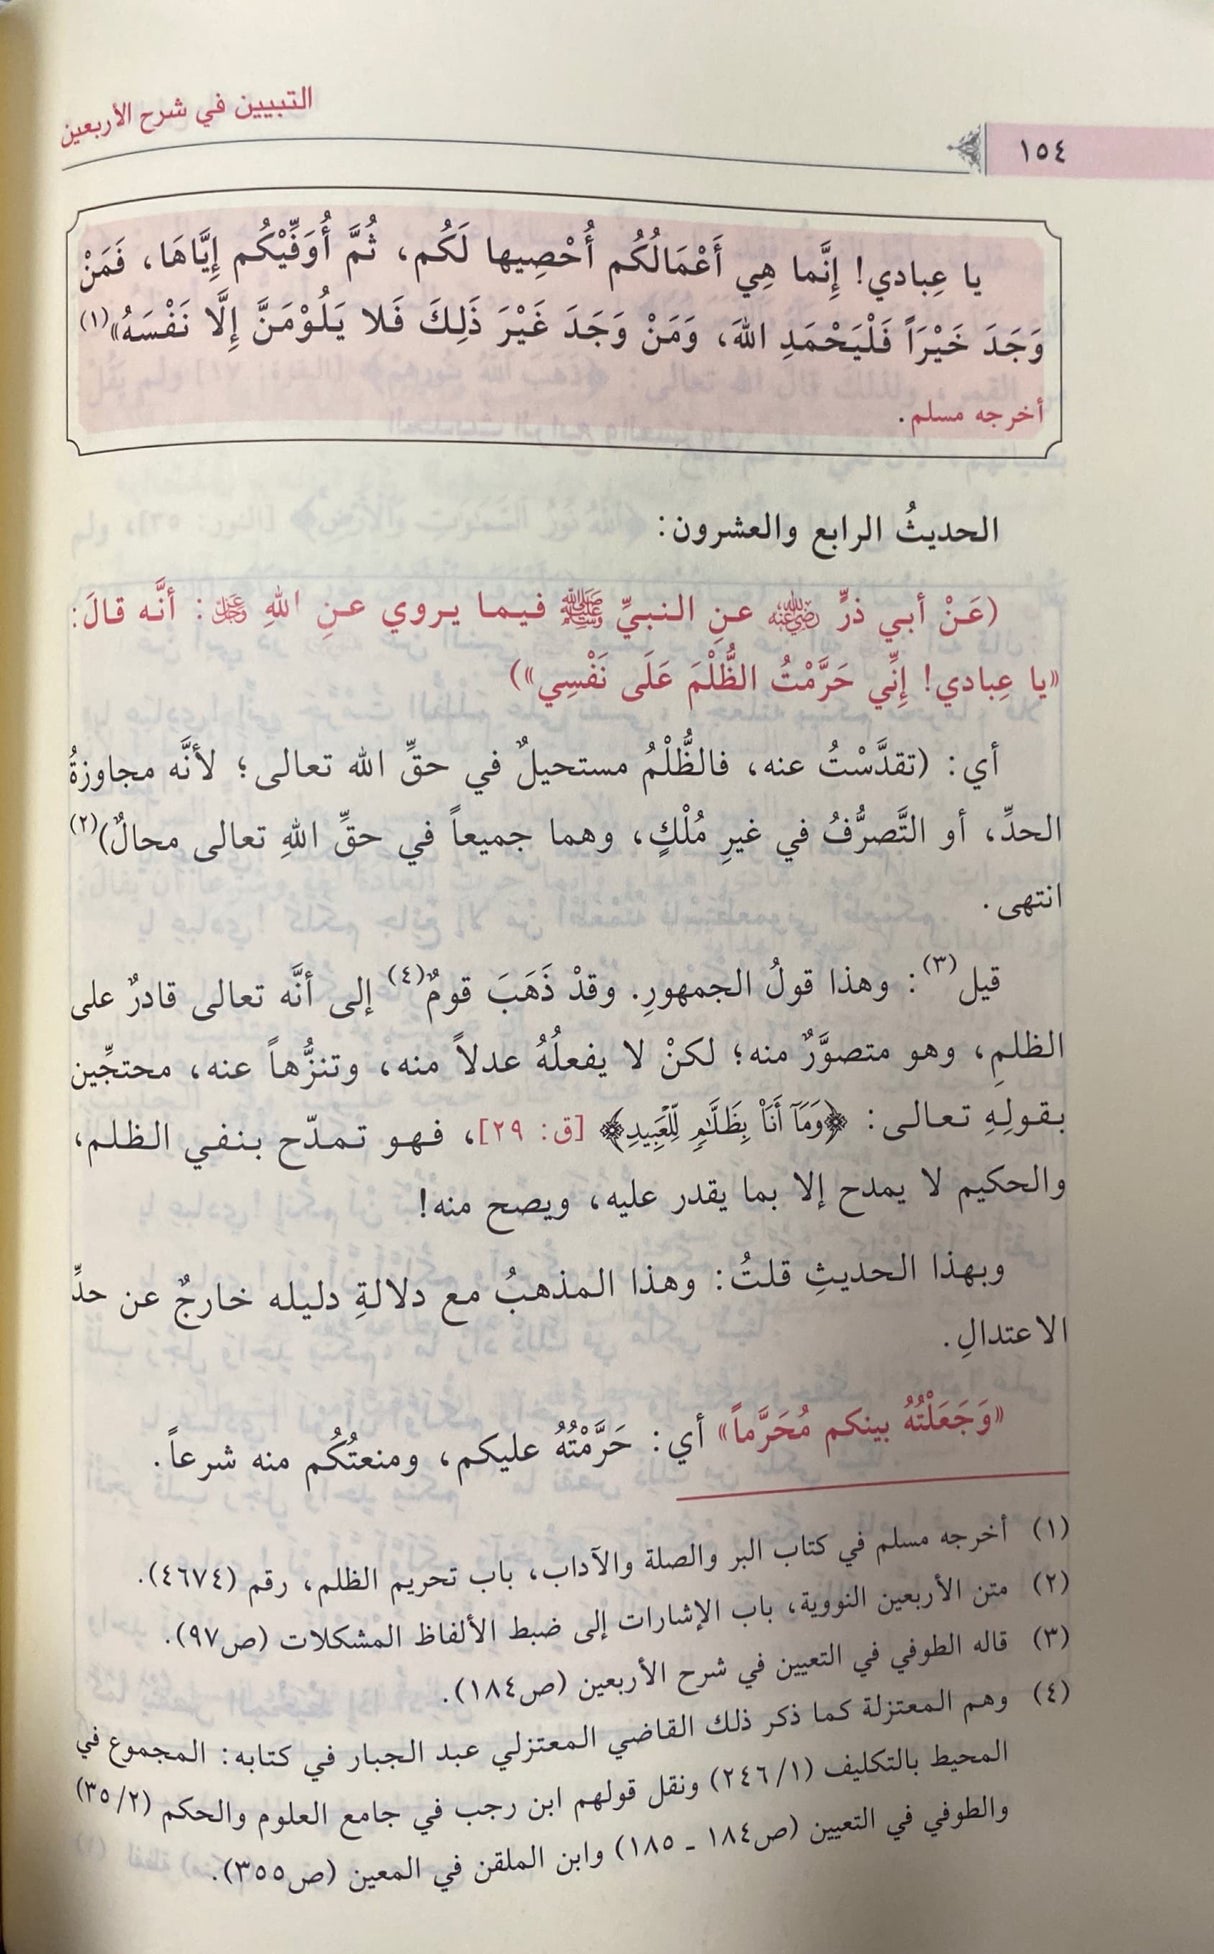 التبيين في شرح الأربعين
١٥٤
يا عِبادي! إِنَّما هِي أَعْمَالُكُم أُحْصِيها لَكُم، ثُمَّ أُوَفِّيْكُم إِيَّاهَا، فَمَنْ
وَجَدَ خَيْرَاً فَلْيَحْمَدِ اللهَ، وَمَنْ وَجَدَ غَيْرَ ذَلِكَ فَلا يَلُوْمَنَّ إِلَّا نَفْسَهُ»(١)
أخرجه مسلم.
الحديثُ الرابع والعشرون:
(عَنْ أبي ذرٍّ رضي الله عنه عنِ النبيِّ ﷺ فيما يروي عنِ اللهِ عز وجل: أنَّه قالَ:
«يا عِبادي! إِنِّي حَرَّمْتُ الظُّلْمَ عَلَى نَفْسِي»)
أي: (تقدَّسْتُ عنه، فالظُّلْمُ مستحيلٌ في حقِّ الله تعالى؛ لأنَّه مجاوزةُ
الحدِّ، أو التَّصرُّفُ في غيرِ مُلْكٍ، وهما جميعاً في حقِّ اللهِ تعالى محالٌ)(٢)
انتهى.
قيل(٣): وهذا قولُ الجمهورِ. وقدْ ذَهَبَ قومٌ(٤) إلى أنَّه تعالى قادرٌ على
الظلمِ، وهو متصوَّرٌ منه؛ لكنْ لا يفعلُهُ عدلاً منه، وتنزُّهاً عنه، محتجِّين
بقولِهِ تعالى: ﴿وَمَآ أَنَا۠ بِظَلَّٰمٍ لِّلْعَبِيدِ﴾ [ق: ٢٩]، فهو تمدّح بنفي الظلم،
والحكيم لا يمدح إلا بما يقدر عليه، ويصح منه!
وبهذا الحديثِ قلتُ: وهذا المذهبُ مع دلالةِ دليله خارجٌ عن حدِّ
الاعتدالِ.
«وَجَعَلْتُهُ بينكم مُحَرَّماً» أي: حَرَّمْتُهُ عليكم، ومنعتُكُم منه شرعاً.
(١) أخرجه مسلم في كتاب البر والصلة والآداب، باب تحريم الظلم، رقم (٤٦٧٤).
(٢) متن الأربعين النووية، باب الإشارات إلى ضبط الألفاظ المشكلات (ص٩٧).
(٣) قاله الطوفي في التعيين في شرح الأربعين (ص١٨٤).
(٤) وهم المعتزلة كما ذكر ذلك القاضي المعتزلي عبد الجبار في كتابه: المجموع في
المحيط بالتكليف (٢٤٦/١) ونقل قولهم ابن رجب في جامع العلوم والحكم (٣٥/٢)
والطوفي في التعيين (ص١٨٤ ـ ١٨٥) وابن الملقن في المعين (ص٣٥٥).